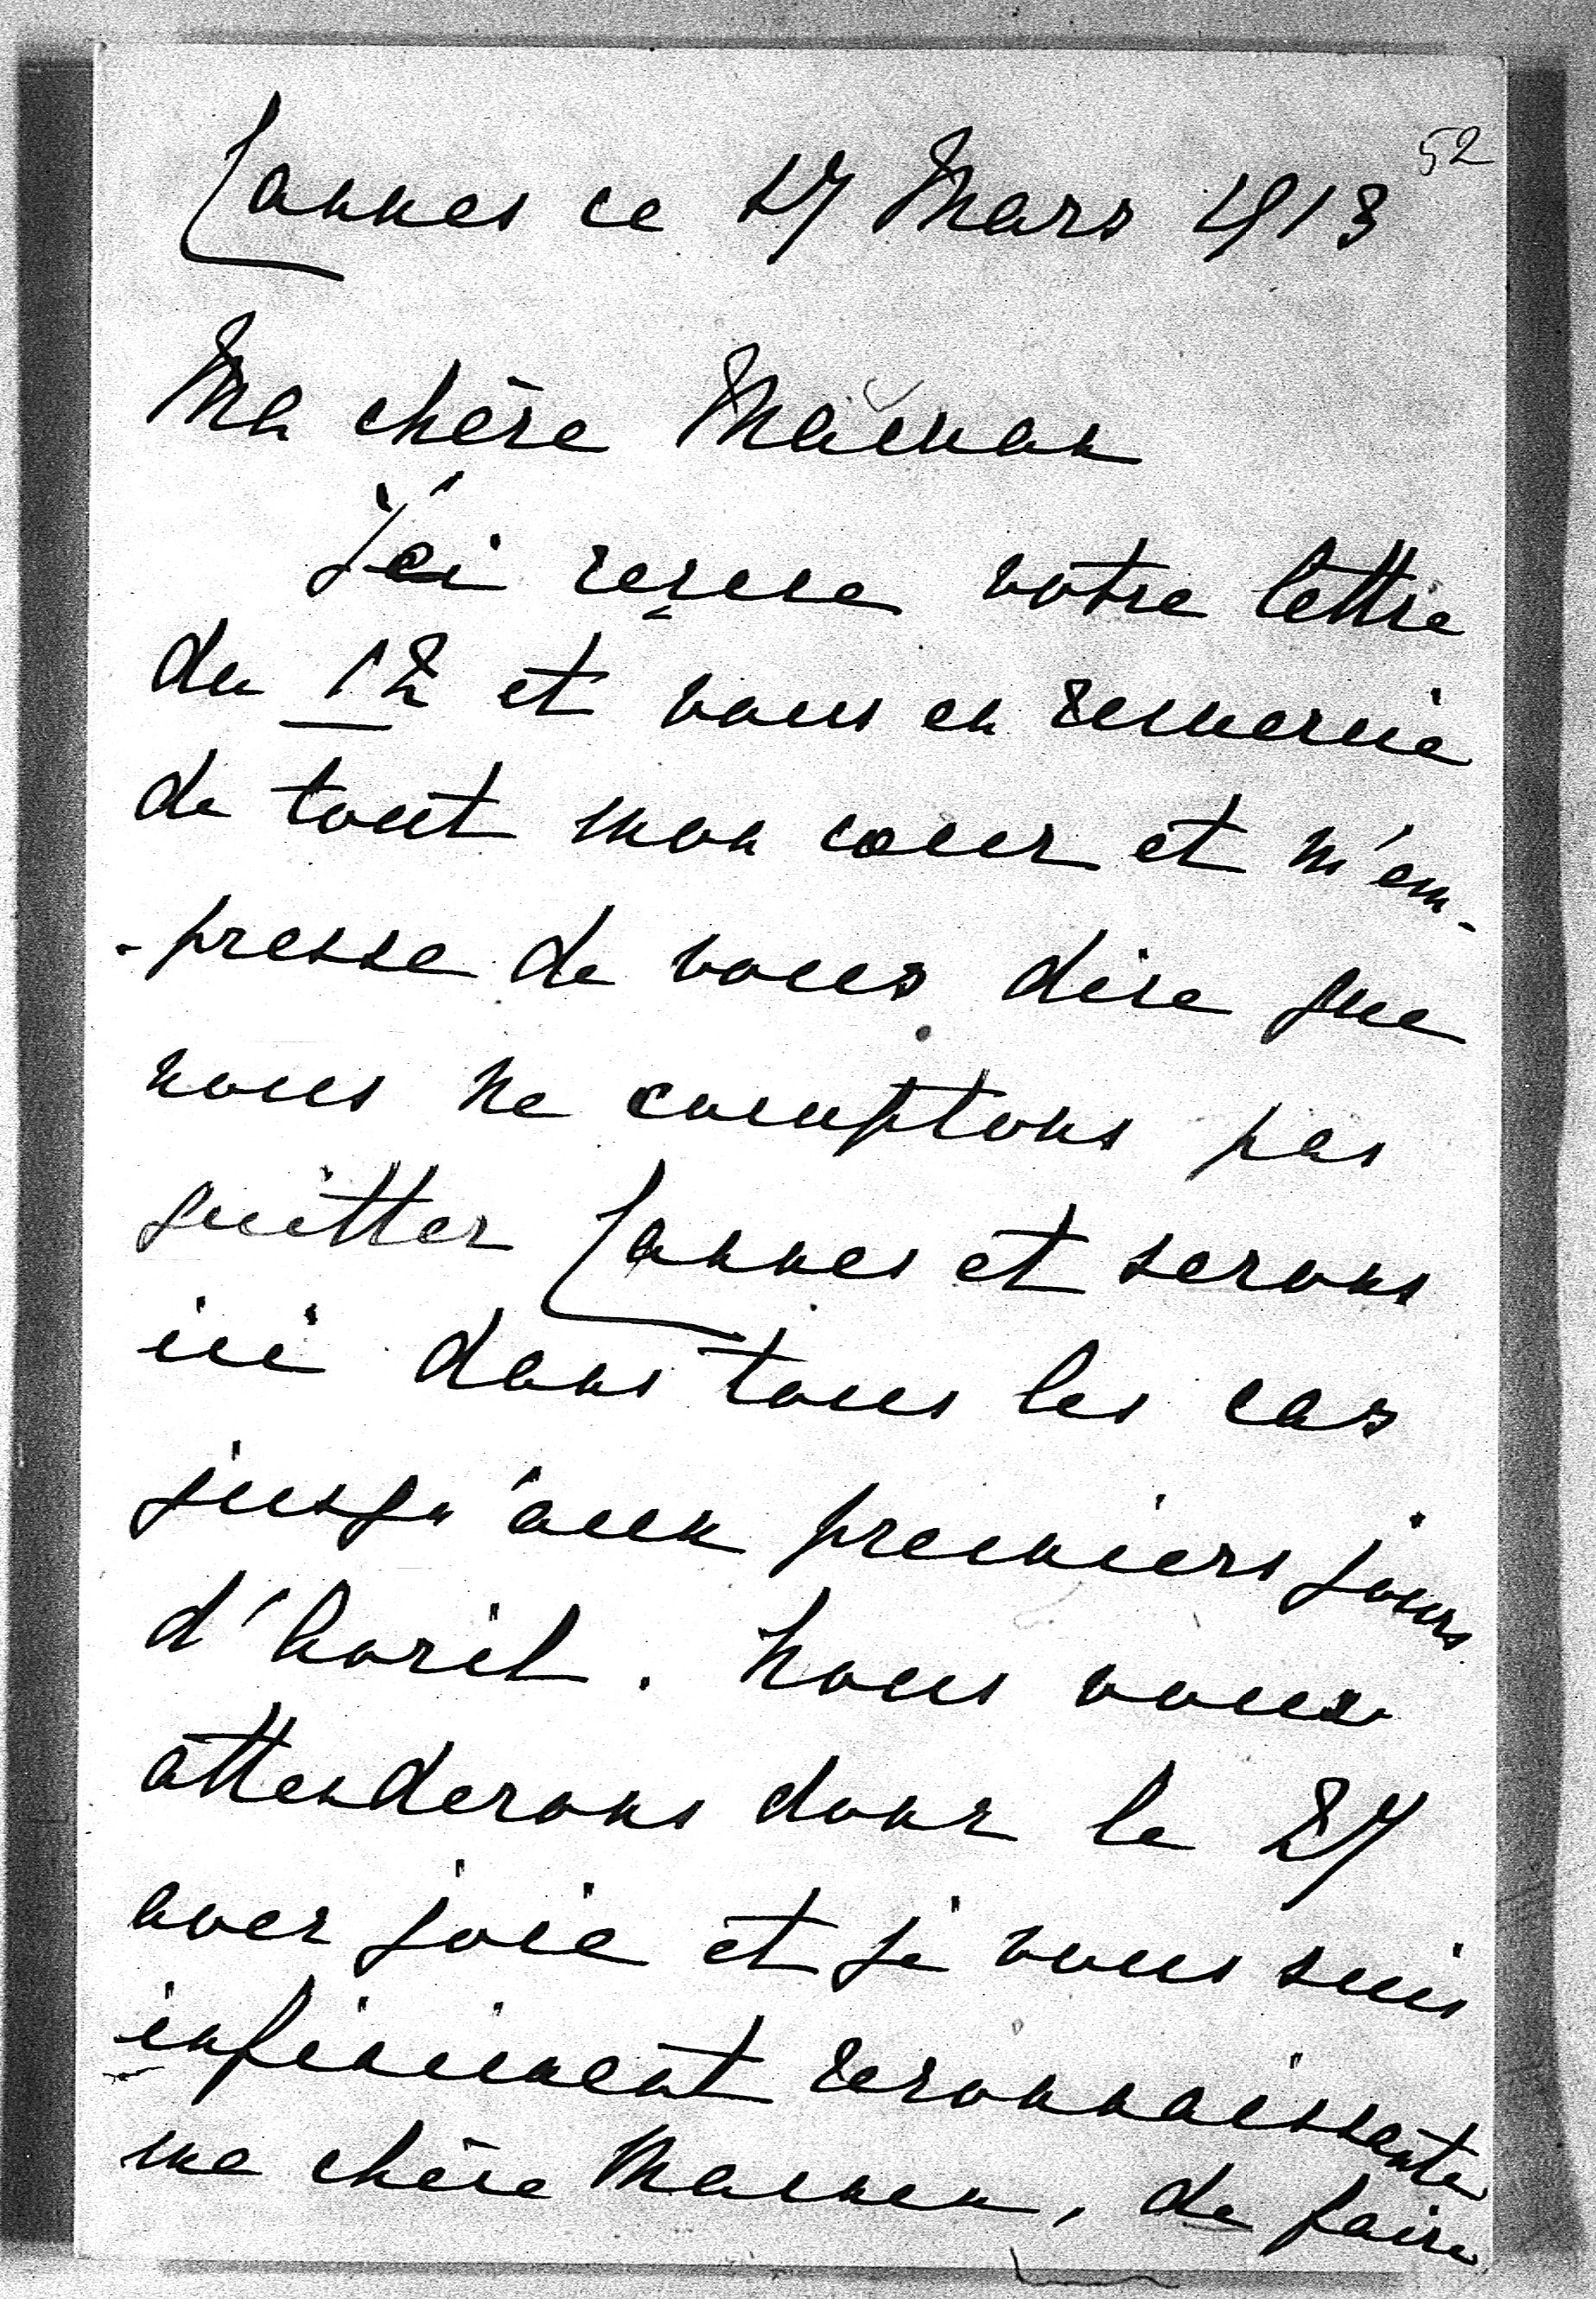 52
Cannes ce 17 Mars 1913
Ma chère Maman
J'ai reçue votre lettre
du 12 et vous en remercie
de tout mon coeur et m'em-
-presse de vous dire que
nous ne comptons pas
quitter Cannes et serons
ici dans tous les cas
jusqu'aux premiers jours
d'Avril. Nous vous
attenderons donc le 27
avec joie et je vous suis
infiniment reconnaissante
ma chère Maman, de faire